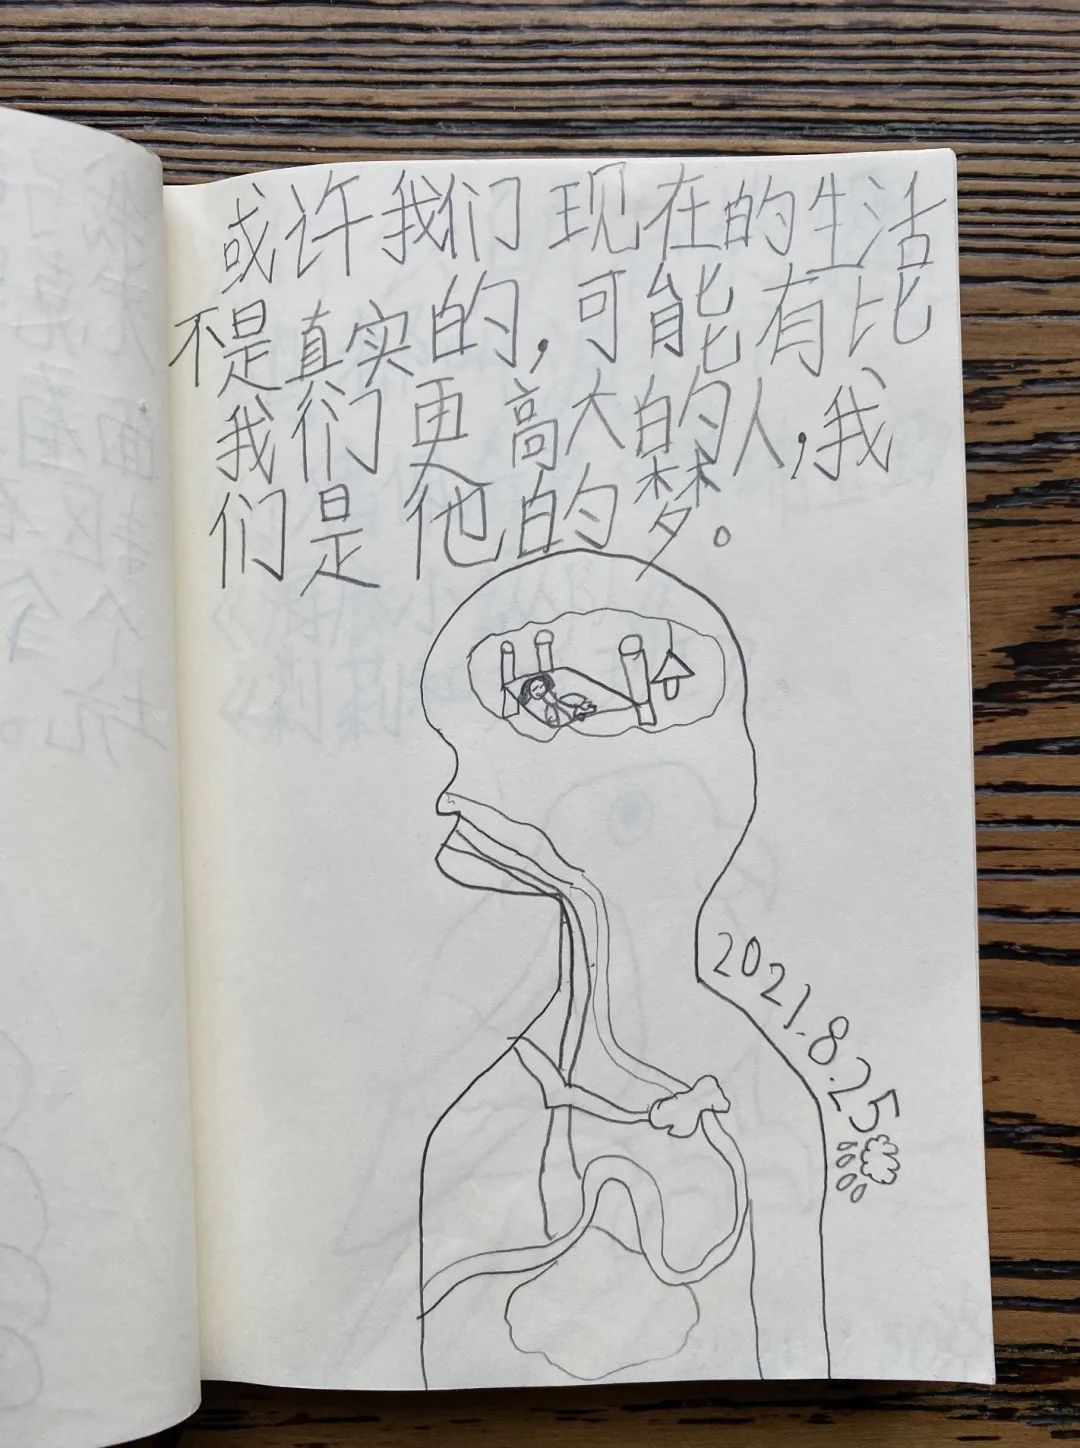 或许我们现在的生活
不是真实的,可能有比
我们更高大的人,我
们是他的梦。
2021.8.25